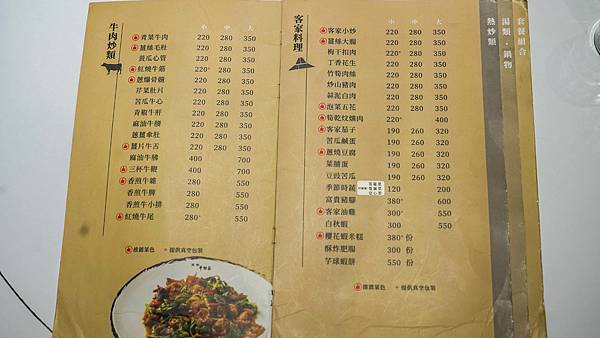 牛肉炒類
小 中 大
青菜牛肉 220 280 350
薑絲毛肚 220 280 350
黃瓜心管 220 280 350
紅燒牛筋 220* 280 350
蔥爆骨髓 220 280 350
芹菜肚片 220 280 350
苦瓜牛心 220 280 350
青椒牛肝 220 280 350
麻油牛腰 220 280 350
蔥薑傘肚 220 280 350
薑片牛舌 220 280 350
麻油牛腦 400 700
三杯牛鞭 400 700
香煎牛雜 280 550
香煎牛脷 280 550
香煎牛小排 280 550
紅燒牛尾 280* 550
推薦菜色 * 提供真空包裝
客家料理
小 中 大
客家小炒 220 280 350
薑絲大腸 220 280 350
梅干扣肉 220* 280 350
丁香花生 220 280 350
竹筍肉絲 220 280 350
炒山豬肉 220 280 350
蒜泥白肉 220 280 350
泡菜五花 220 280 350
筍乾炆爌肉 220* 400
客家茄子 190 260 320
苦瓜鹹蛋 190 260 320
蔥燒豆腐 190 260 320
菜脯蛋 190 260 320
豆豉苦瓜 190 260 320
季節時蔬 120 200
富貴豬腳 380* 600
客家油雞 300* 550
白秋蝦 300 550
櫻花蝦米糕 380* 份
酥炸肥腸 300 份
芋球蝦餅 550 份
推薦菜色 * 提供真空包裝
熱炒類
湯類．鍋物
套餐組合